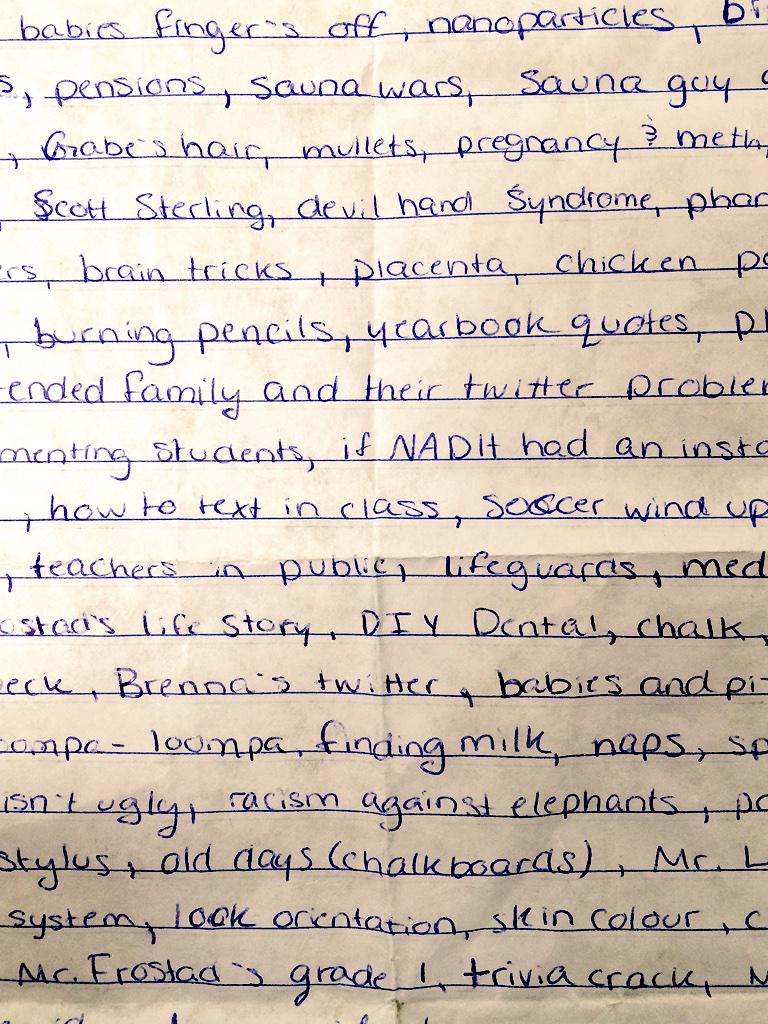 babies finger's off, nanoparticles,
, pensions, sauna wars, sauna guy
, Grabe's hair, mullets, pregnancy & meth,
, Scott Sterling, devil hand Syndrome,
, brain tricks, placenta, chicken
, burning pencils, yearbook quotes,
family and their twitter
students, if NADIt had an
, how to text in class, soccer wind up
, teachers in public, lifeguards,
life story, DIY Dental, chalk,
, Brenna's twitter, babies and
loompa, finding milk, naps,
isn't ugly, racism against elephants,
stylus, old days (chalkboards), Mr.
system, look orientation, skin colour,
Mr. Frostad's grade 1, trivia crack,